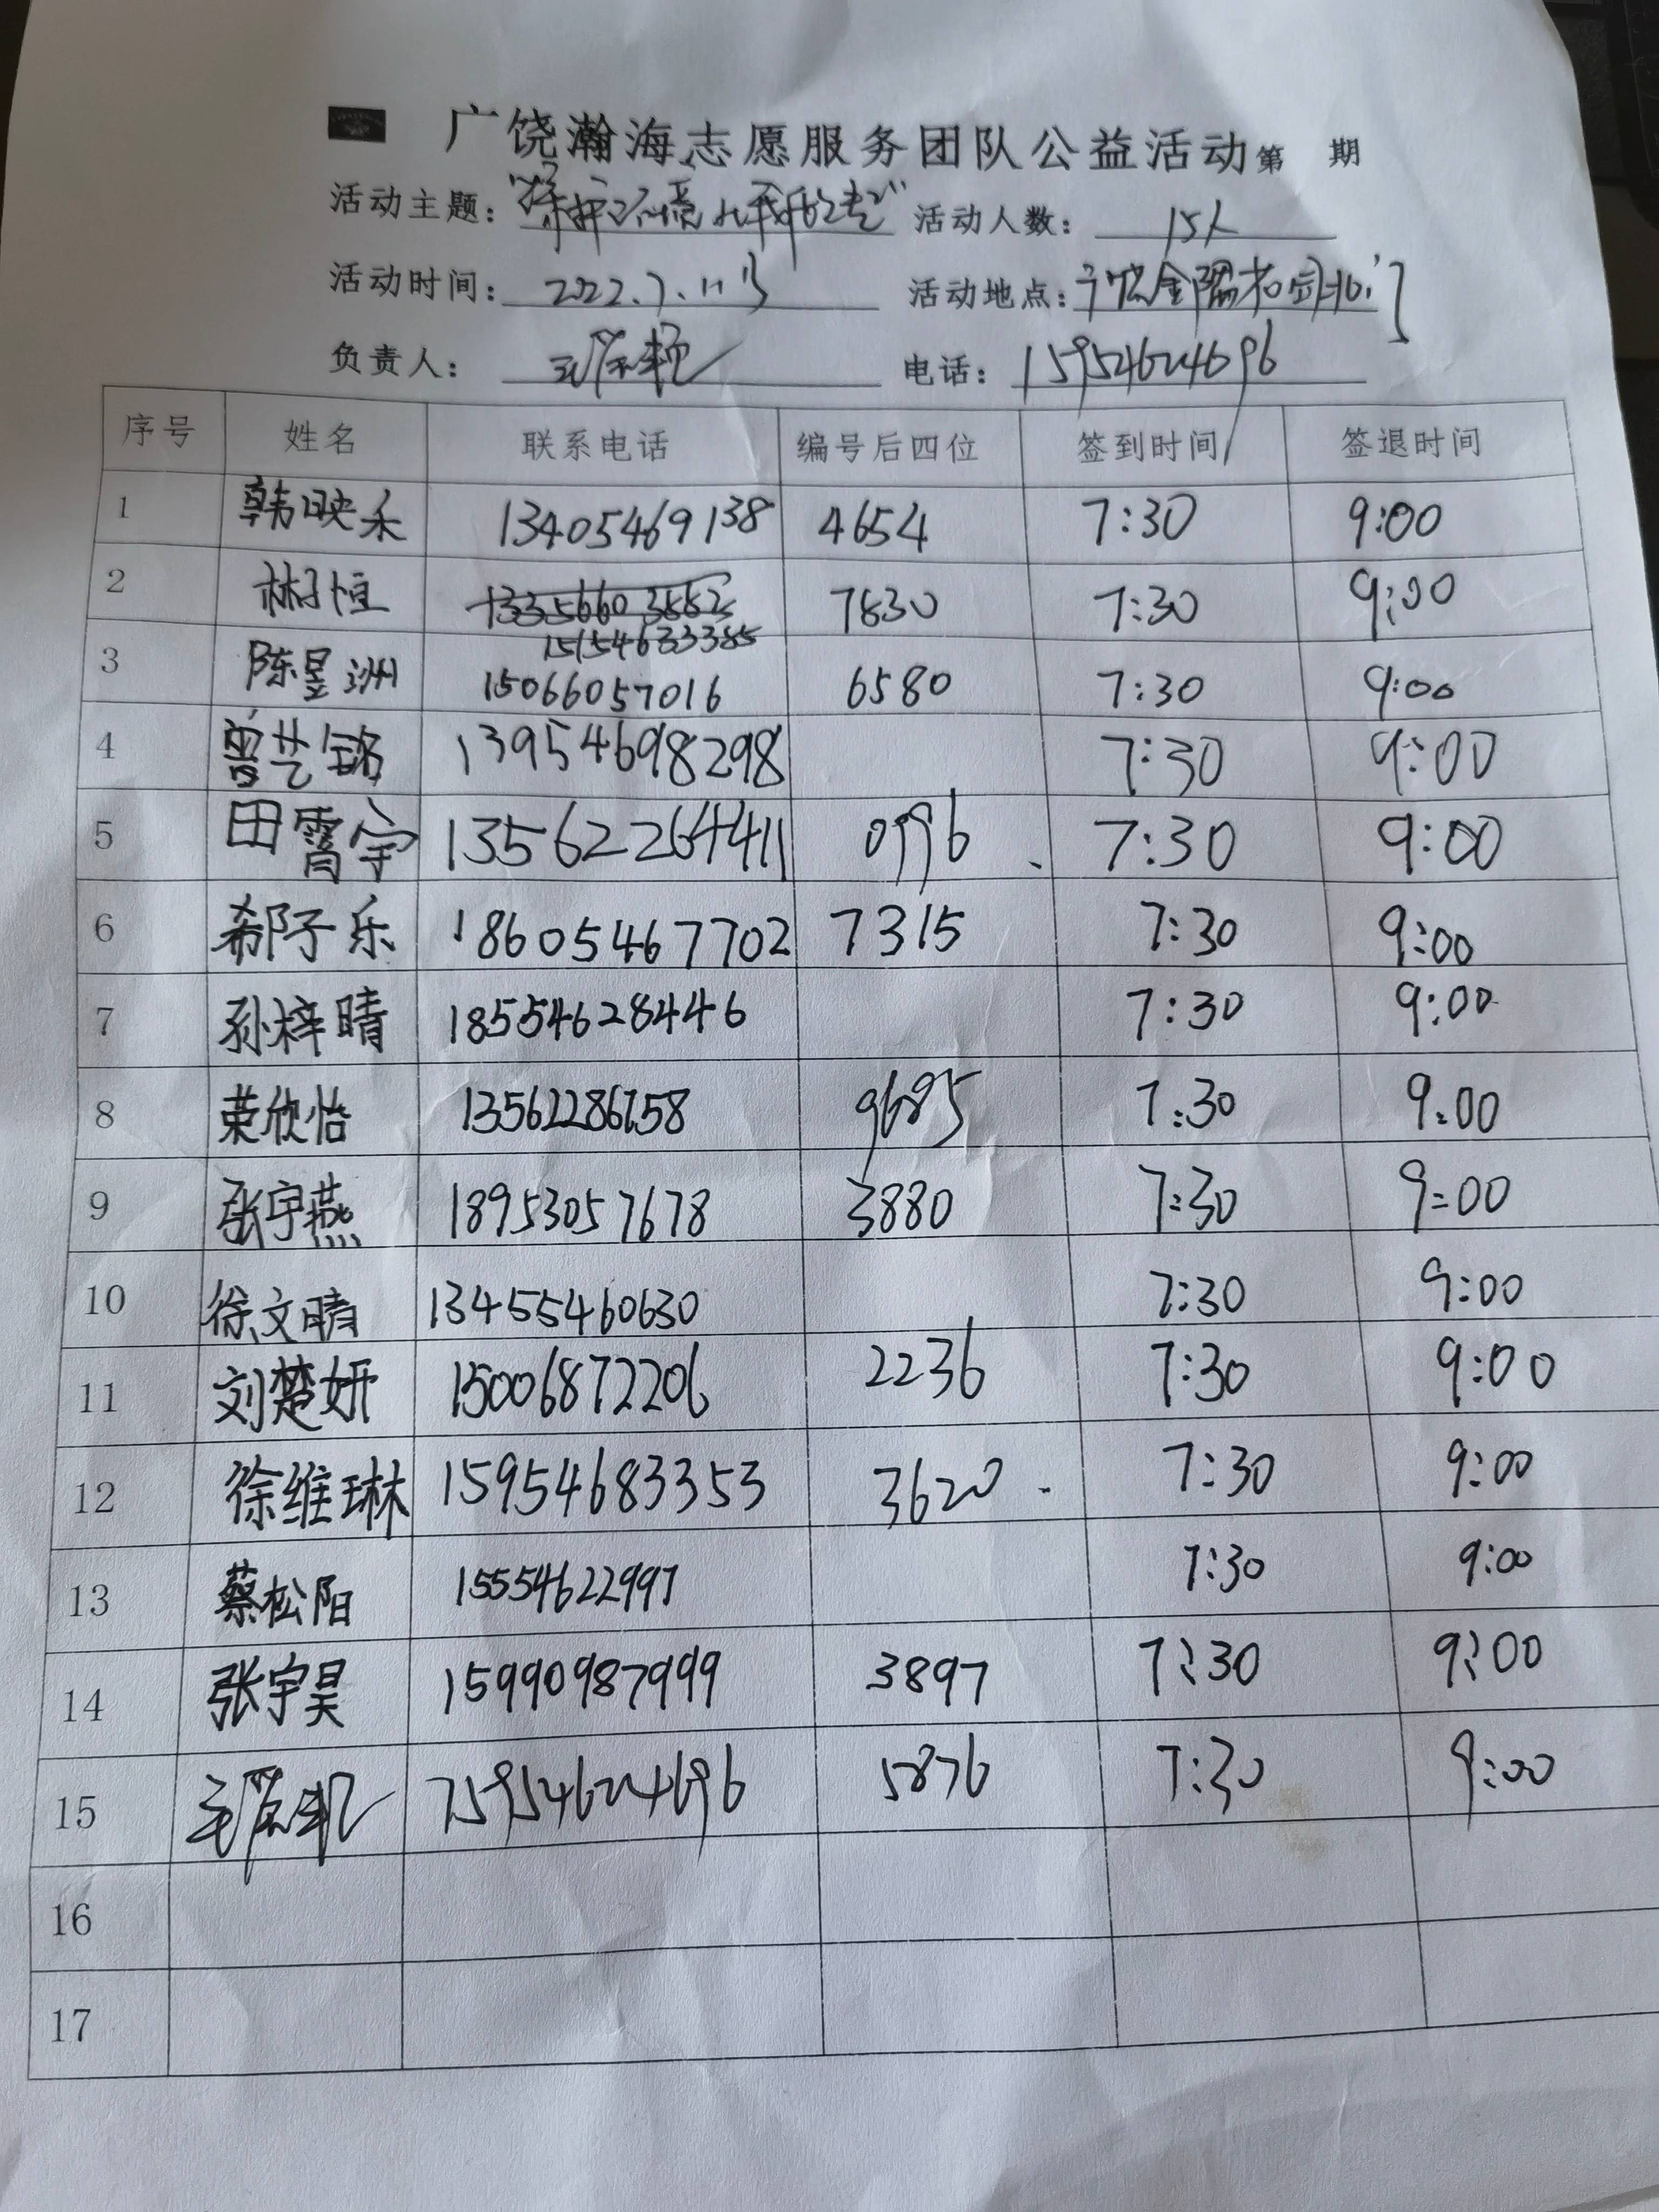 广饶瀚海志愿服务团队公益活动第 期
活动主题： 活动人数： 15人
活动时间： 2022.7.11号 活动地点： 北门
负责人： 电话： 15954624696
序号 姓名 联系电话 编号后四位 签到时间 签退时间
1 韩映禾 13405469138 4654 7:30 9:00
2 林恒 13356603882 7830 7:30 9:00
15154633385
3 陈昱洲 15066057016 6580 7:30 9:00
4 曾艺铭 13954698298 7:30 9:00
5 田霄宇 13562264411 0996 7:30 9:00
6 郗子乐 18605467702 7315 7:30 9:00
7 孙梓晴 18554628446 7:30 9:00
8 荣欣怡 13562286758 9685 7:30 9:00
9 张宇燕 18953057678 3880 7:30 9:00
10 徐文晴 13455460630 7:30 9:00
11 刘楚妍 15006872206 2236 7:30 9:00
12 徐维琳 15954683353 3620 7:30 9:00
13 蔡松阳 15554622997 7:30 9:00
14 张宇昊 15990987999 3897 7:30 9:00
15 15954624696 5876 7:30 9:00
16
17